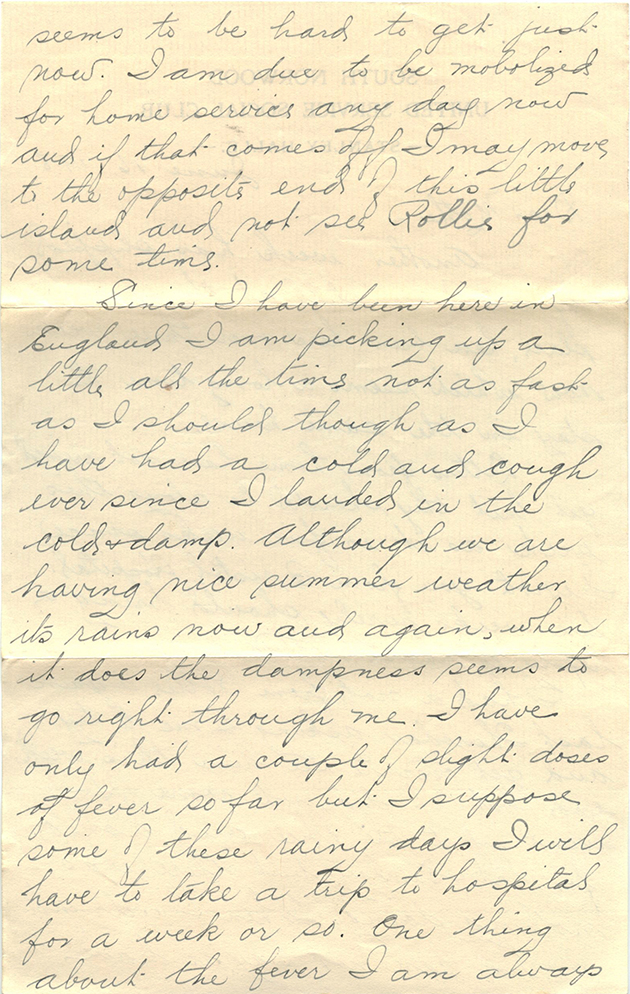 seems to be hard to get just
now. I am due to be mobolized
for home service any day now
and if that comes off I may move
to the opposite end of this little
island and not see Rollie for
some time.
Since I have been here in
England I am picking up a
little all the time not as fast
as I should though as I
have had a cold and cough
ever since I landed in the
cold & damp. Although we are
having nice summer weather
its rains now and again, when
it does the dampness seems to
go right through me. I have
only had a couple of slight doses
of fever so far but I suppose
some of these rainy days I will
have to take a trip to hospital
for a week or so. One thing
about the fever I am always